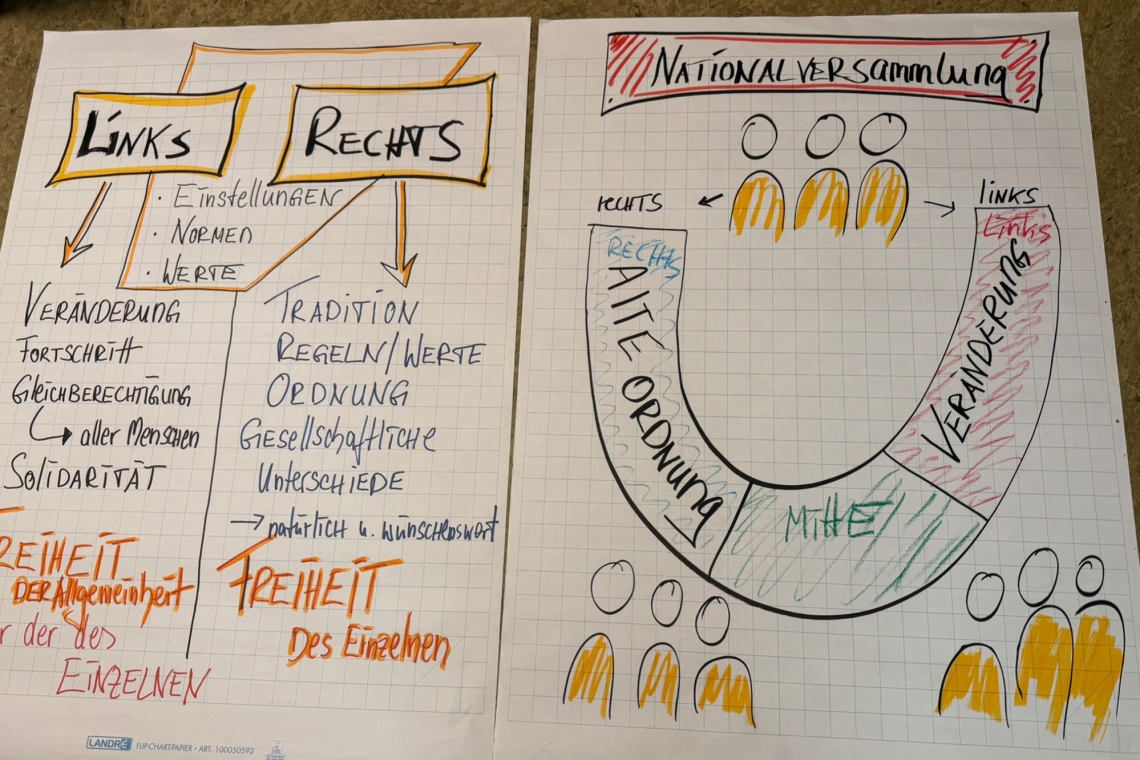 LINKS
RECHTS
· EinstellungEN
· NORMEN
· WERTE
VERÄNDERUNG
FORTSCHRITT
GlEiCHBERECHTIGUNG
aller Menschen
SOLIDARITÄT
REIHEIT
DER Allgemeinheit
r der des
EINZELNEN
TRADITION
REGELN/WERTE
ORDNUNG
Gesellschaftliche
UnterschiEDE
→ natürlich u. wünschenswert
FREIHEIT
Des Einzelnen
LANDRÉ FLIP-CHART-PAPIER • ART. 100050592
NATIONALVERSammlung
rechts
links
RECHTS
AlTE ORDNUng
MiTTE
Links
VERÄNDERUNG